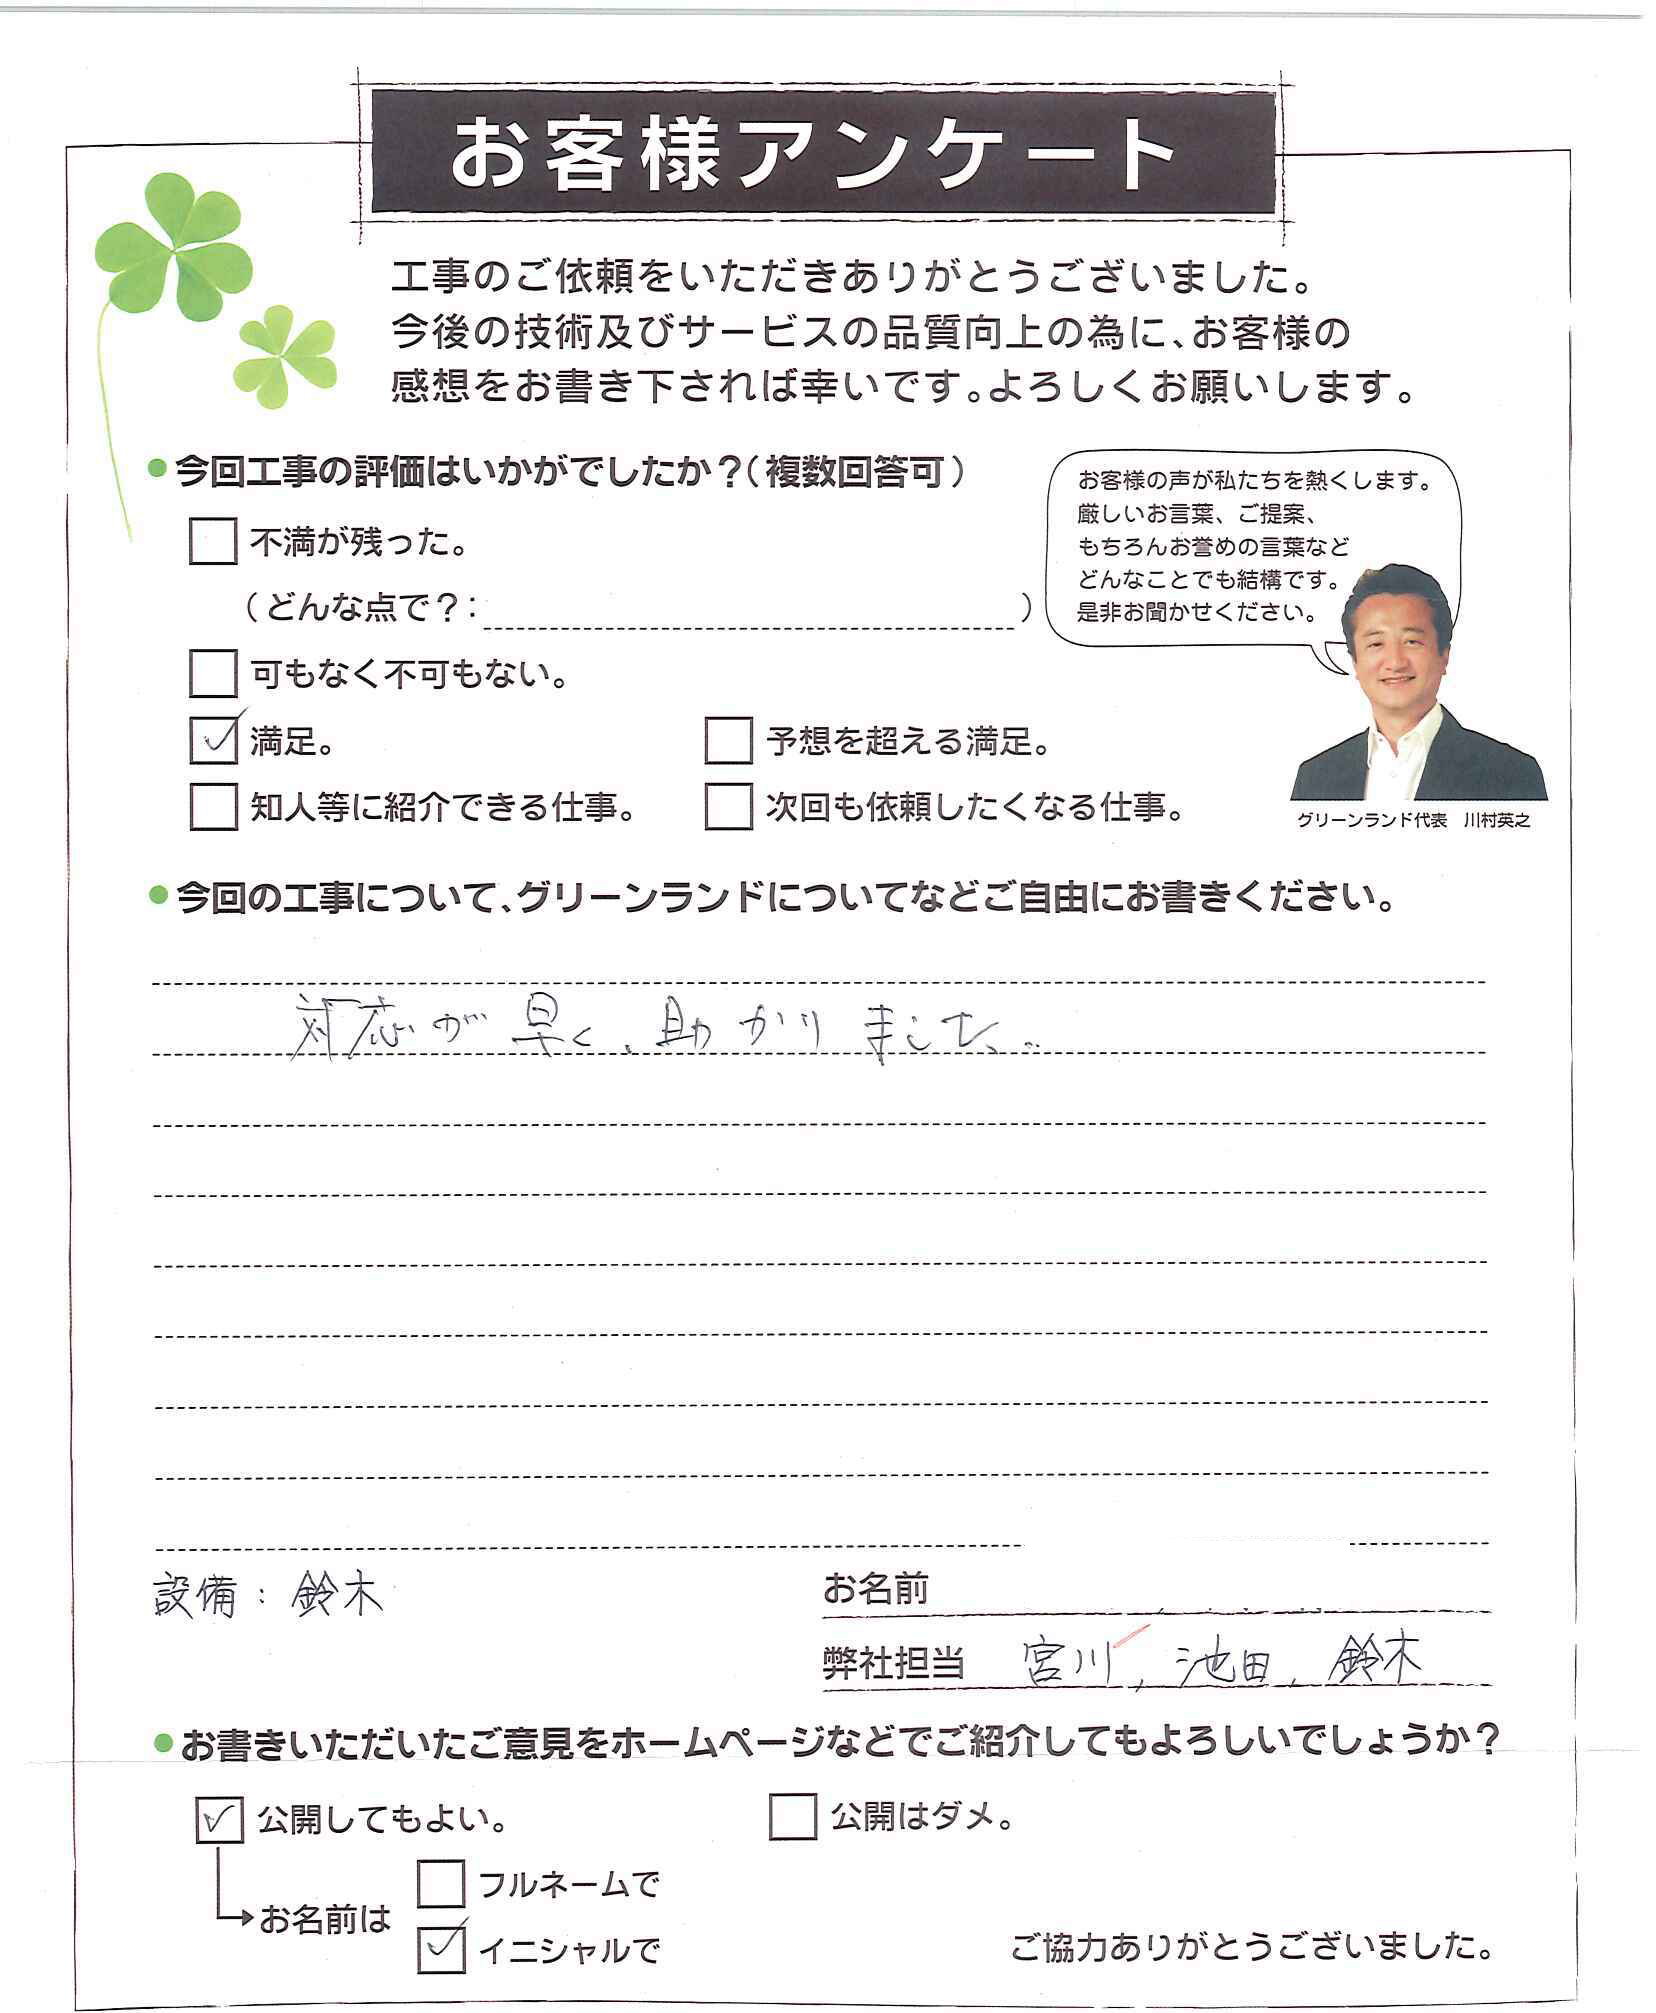 お客様アンケート
工事のご依頼をいただきありがとうございました。
今後の技術及びサービスの品質向上の為に、お客様の
感想をお書き下されば幸いです。よろしくお願いします。
●今回工事の評価はいかがでしたか？（複数回答可）
不満が残った。
（どんな点で？：　）
可もなく不可もない。
満足。
予想を超える満足。
知人等に紹介できる仕事。
次回も依頼したくなる仕事。
お客様の声が私たちを熱くします。
厳しいお言葉、ご提案、
もちろんお誉めの言葉など
どんなことでも結構です。
是非お聞かせください。
グリーンランド代表　川村英之
●今回の工事について、グリーンランドについてなどご自由にお書きください。
対応が早く、助かりました。
設備：鈴木
お名前
弊社担当　宮川、池田、鈴木
●お書きいただいたご意見をホームページなどでご紹介してもよろしいでしょうか？
公開してもよい。
公開はダメ。
お名前は
フルネームで
イニシャルで
ご協力ありがとうございました。